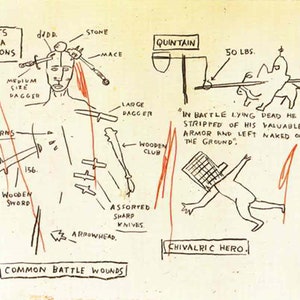 TS
A
ONS
dDDD.
STONE
MACE
MEDIUM
SIZE
DAGGER
LARGE
DAGGER
RNS
WOODEN
CLUB
136.
WOODEN
SWORD
ASSORTED
SHARP
KNIVES.
ARROWHEAD.
COMMON BATTLE WOUNDS
QUINTAIN
50 LBS.
"IN BATTLE LYING DEAD HE
STRIPPED OF HIS VALUABLE
ARMOR AND LEFT NAKED O
THE GROUND".
CHIVALRIC HERO.